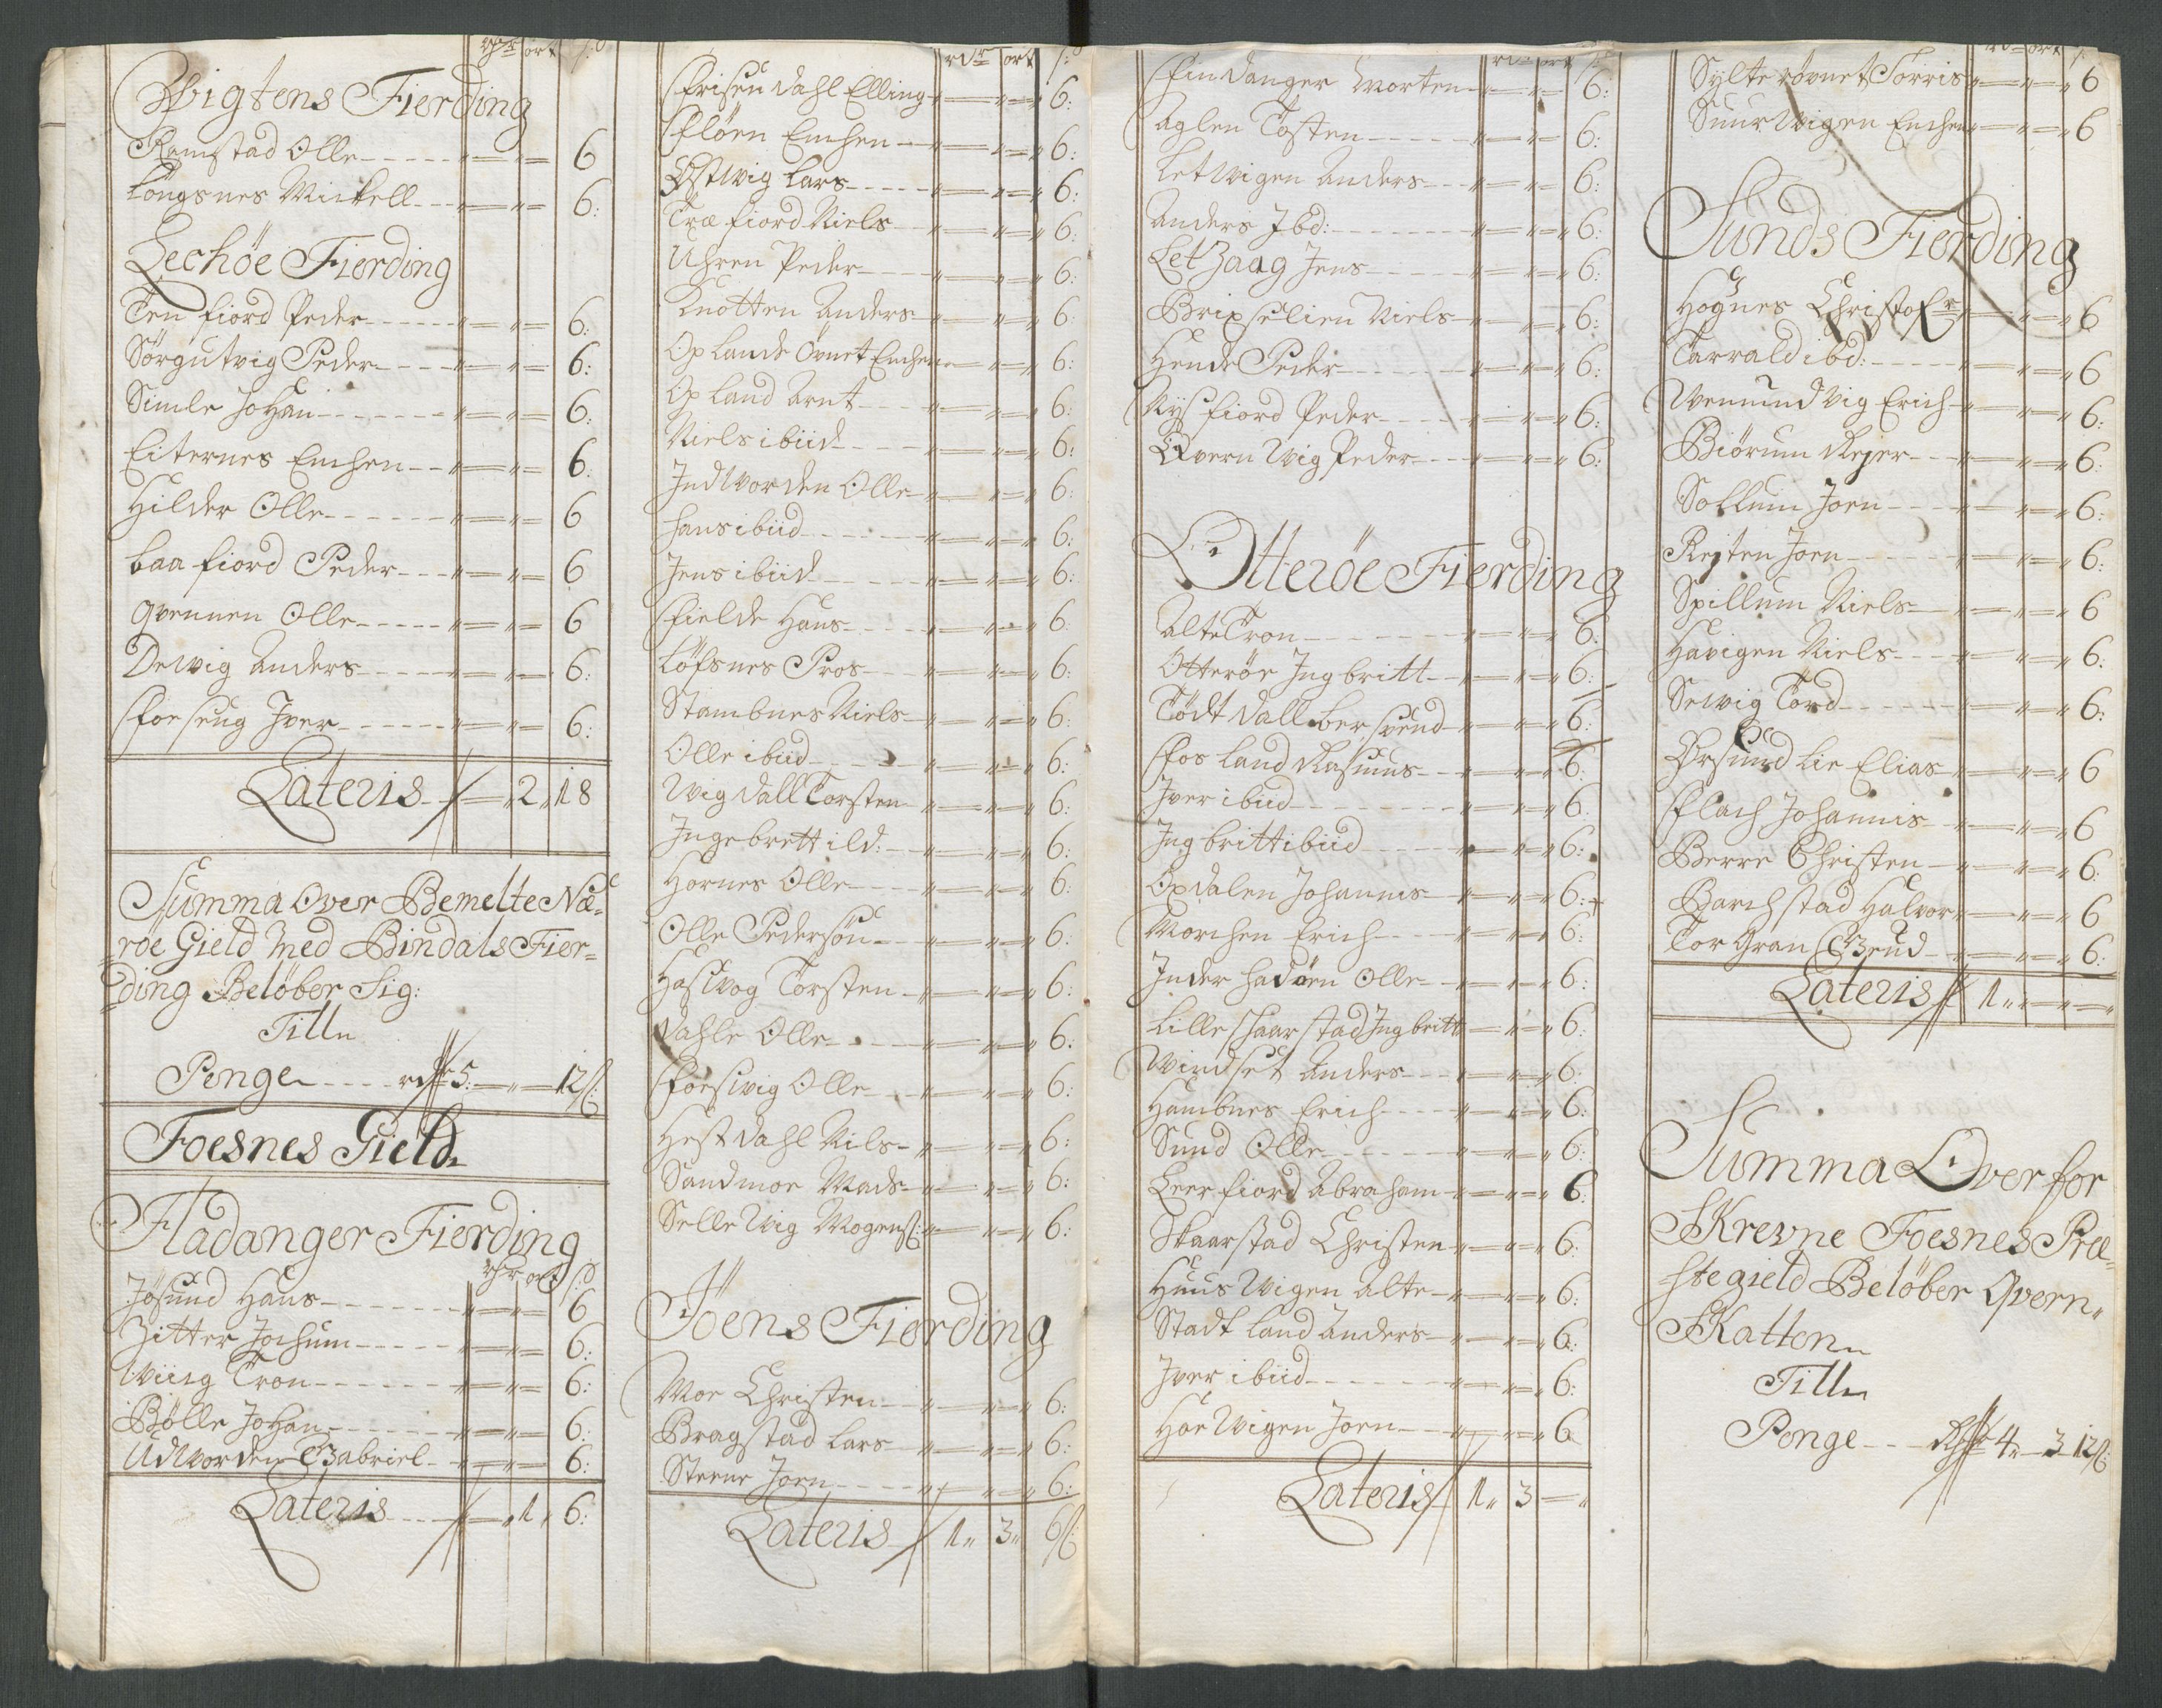 rdr ort ß
Wigtens Fierding
Ramstad Olle - - - - - „ = „ = 6
Löngsnes Mickell - - „ = „ = 6:
Lecköe Fierding
Ten fiord Peder - - - - „ = „ = 6:
Sörgutvig Peder - - - „ = „ = 6:
Simle Johan - - - - „ = „ = 6:
Eiternes Enchen - - „ = „ = 6:
Hilder Olle - - - - „ = „ = 6
Laa fiord Peder - - - „ = „ = 6
Qvennen Olle - - - - „ = „ = 6
Delvig Anders - - - „ = „ = 6:
Forseng Iver - - - - „ = „ = 6:
Lateris - „ 2 „ 18
Summa Over Bemelte Næ-
röe Gield Med Bindals Fier-
ding Belöber Sig:
Till
Penge - - - - rdr 5: — „ — 12 ß:
Foesnes Gield
Fladanger Fierding
rdr ort ß
Jösund Hans - - - - „ = „ = 6
Zitter Jochum - - - - „ = „ = 6:
Wiisg Tron - - - - „ = „ = 6:
Bölle Johan - - - - „ = „ = 6:
Udvorden Gabriel - - „ = „ = 6:
Lateris - - - „ 1 „ 6:
rdr ort ß
Frisendahl Elling „ = „ = „ 6:
Flöen Enchen - „ = „ = „ 6:
Östvig Lars - - - - „ = „ = „ 6:
Træfiord Niels - „ = „ = „ 6:
Uhren Peder - - - „ = „ = „ 6:
Knotten Anders - „ = „ = „ 6:
Oplande Övnet Enchen „ = „ = 6:
Opland Arnt - - „ = „ = 6:
Niels ibiid - - - „ = „ = 6:
Indvorden Olle - „ = „ = „ 6:
Hans ibiid - - - - „ = „ = „ 6:
Jens ibiid - - - - „ = „ = „ 6:
Fielde Hans - - - „ = „ = „ 6:
Löfsnes Pros - - - „ = „ = „ 6:
Stambnes Niels - „ = „ = „ 6:
Olle ibiid - - - - „ = „ = „ 6:
Wigdall Torsten - „ = „ = „ 6:
Ingebrett ibd: - - „ = „ = „ 6:
Hornes Olle - - - „ = „ = „ 6:
Olle Pedersön - - „ = „ = „ 6:
Haslvog Torsten - „ = „ = „ 6:
Dahle Olle - - - - „ = „ = „ 6:
Forslvig Olle - - „ = „ = „ 6:
Hestdahl Nils - „ = „ = „ 6:
Sandmoe Mads - „ = „ = „ 6:
Sellevig Mogenß: „ = „ = „ 6:
Jöens Fierding
Moe Christen - - „ = „ = „ 6:
Bragstad Lars - „ = „ = „ 6:
Steene Joen - - - „ = „ = „ 6:
Lateris 1 „ 3 „ 6 ß:
rdr ort ß
Findanger Morten „ = „ = 6:
Aglen Tosten - - - - „ = „ = 6:
Letvigen Anders - - „ = „ = 6:
Anders Ibd: - - - - „ = „ = „ 6:
Let Zaag Jens - - - „ = „ = „ 6:
Brixselien Niels - „ = „ = „ 6:
Hende Peder - - - - „ = „ = „ 6:
Nysfiord Peder - - - „ = „ = „ 6:
Qvernvig Peder - - „ = „ = „ 6:
Otteröe Fierding
Alte Tron - - - - - „ = „ = 6:
Otteröe Ingbritt - „ = „ = 6:
Tödtdall Berswend „ = „ = „ 6:
Fosland Rasmus - - „ = „ = 6:
Iver ibiid - - - - - „ = „ = „ 6:
Ingbritt ibiid - - - „ = „ = „ 6:
Opdalen Johannis - „ = „ = „ 6:
Morchen Erich - - - „ = „ = „ 6:
Inder Hadöen Olle - „ = „ = „ 6:
Lille Schaarstad Ingbritt „ = „ = „ 6:
Windset Anders - - „ = „ = „ 6:
Hambnes Erich - - - „ = „ = „ 6:
Sund Olle - - - - „ = „ = „ 6:
Leerfiord Abraham - „ = „ = „ 6:
Skaarstad Christen - „ = „ = „ 6:
Huusvigen Alte - - „ = „ = „ 6:
Stadtland Anders - „ = „ = „ 6:
Iver ibiid - - - - - „ = „ = „ 6:
Haevigen Joen - - „ = „ = „ 6
Lateris 1 „ 3 — „
rdr ort ß
Sylterövnet Torris „ = „ = „ 6
Suurvigen Enchen „ = „ = „ 6
Sunds Fierding
Hognes Christofr „ = „ = „ 6
Tarrald ibd: - - - - „ = „ = „ 6
Wemundvig Erich - „ = „ = „ 6:
Biörum Rejer - - - „ = „ = „ 6:
Sollum Joen - - - „ = „ = „ 6:
Rejten Joen - - - - „ = „ = „ 6:
Spillum Niels - - „ = „ = „ 6
Havigen Niels - - - „ = „ = „ 6:
Selvig Tord - - - - „ = „ = „ 6:
Örsund Lie Elias - „ = „ = „ 6
Flach Johannis - „ = „ = „ 6
Berre Christen - „ = „ = „ 6:
Barchstad Halvor „ = „ = „ 6
Tor Gran Gend - „ = „ = „ 6:
Lateris 1 „ — „ — „
Summa Over for
Skrevne Foesnes Præ-
stegield Belöber Qvern-
Skatten
Till
Penge - - Rdr 4 „ 3 12 ß: